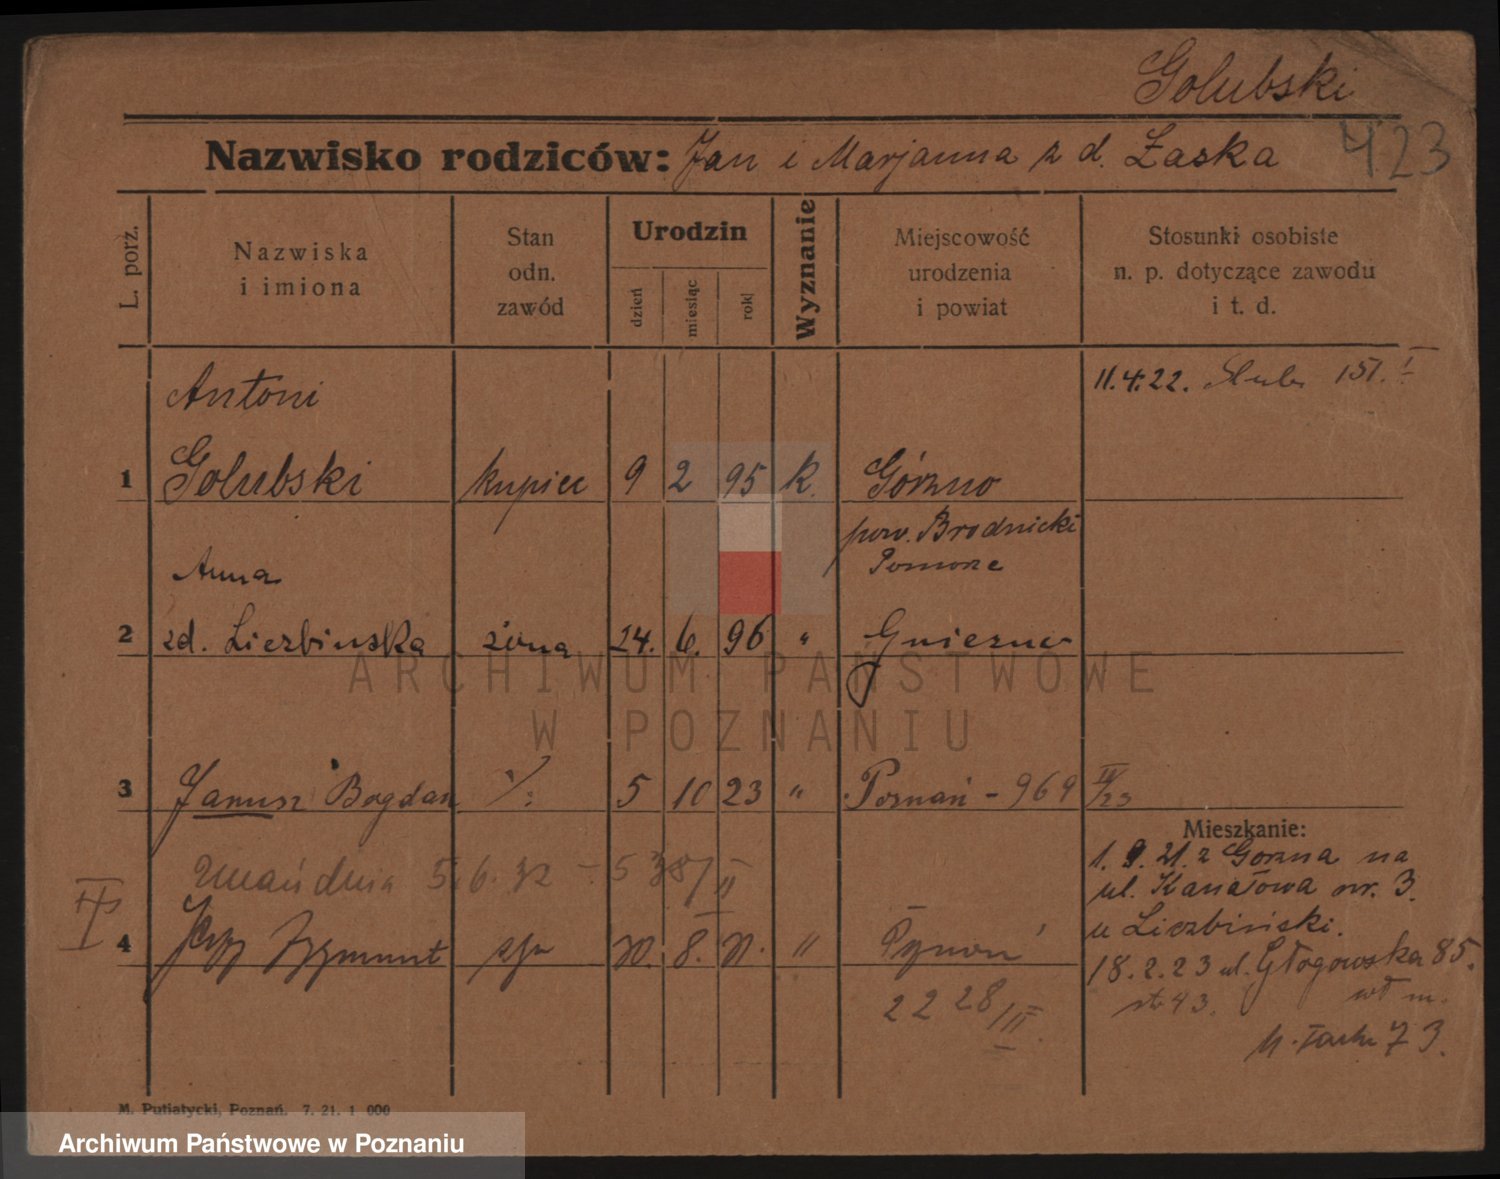 Golubski
Nazwisko rodziców: Jan i Marjanna z d. Łaska
423
L. porz.
Nazwiska
i imiona
Stan
odn.
zawód
Urodzin
dzień
miesiąc
rok
Wyznanie
Miejscowość
urodzenia
i powiat
Stosunki osobiste
n. p. dotyczące zawodu
i t. d.
Antoni
11.4.22. Ślub 151. I
1 Golubski kupiec 9 2 95 k. Górzno
pow. Brodnicki
Pomorze
Anna
2 zd. Liczbinska żona 24. 6. 96 " Gniezno
3 Janusz Bogdan ·/: 5 10 23 " Poznań - 969
Mieszkanie:
1. 9. 21. z Gorzna na
ul. Kanałowa nr. 3.
u Liczbiński.
18. 2. 23 ul. Głogowska 85.
5. 6. 32 - 538/II
4 Jerzy Zygmunt syn 8. " Poznań
2228/II
str 43. wł m.
73.
M. Putiatycki, Poznań. 7. 21. 1 000
ARCHIWUM PAŃSTWOWE
W POZNANIU
Archiwum Państwowe w Poznaniu